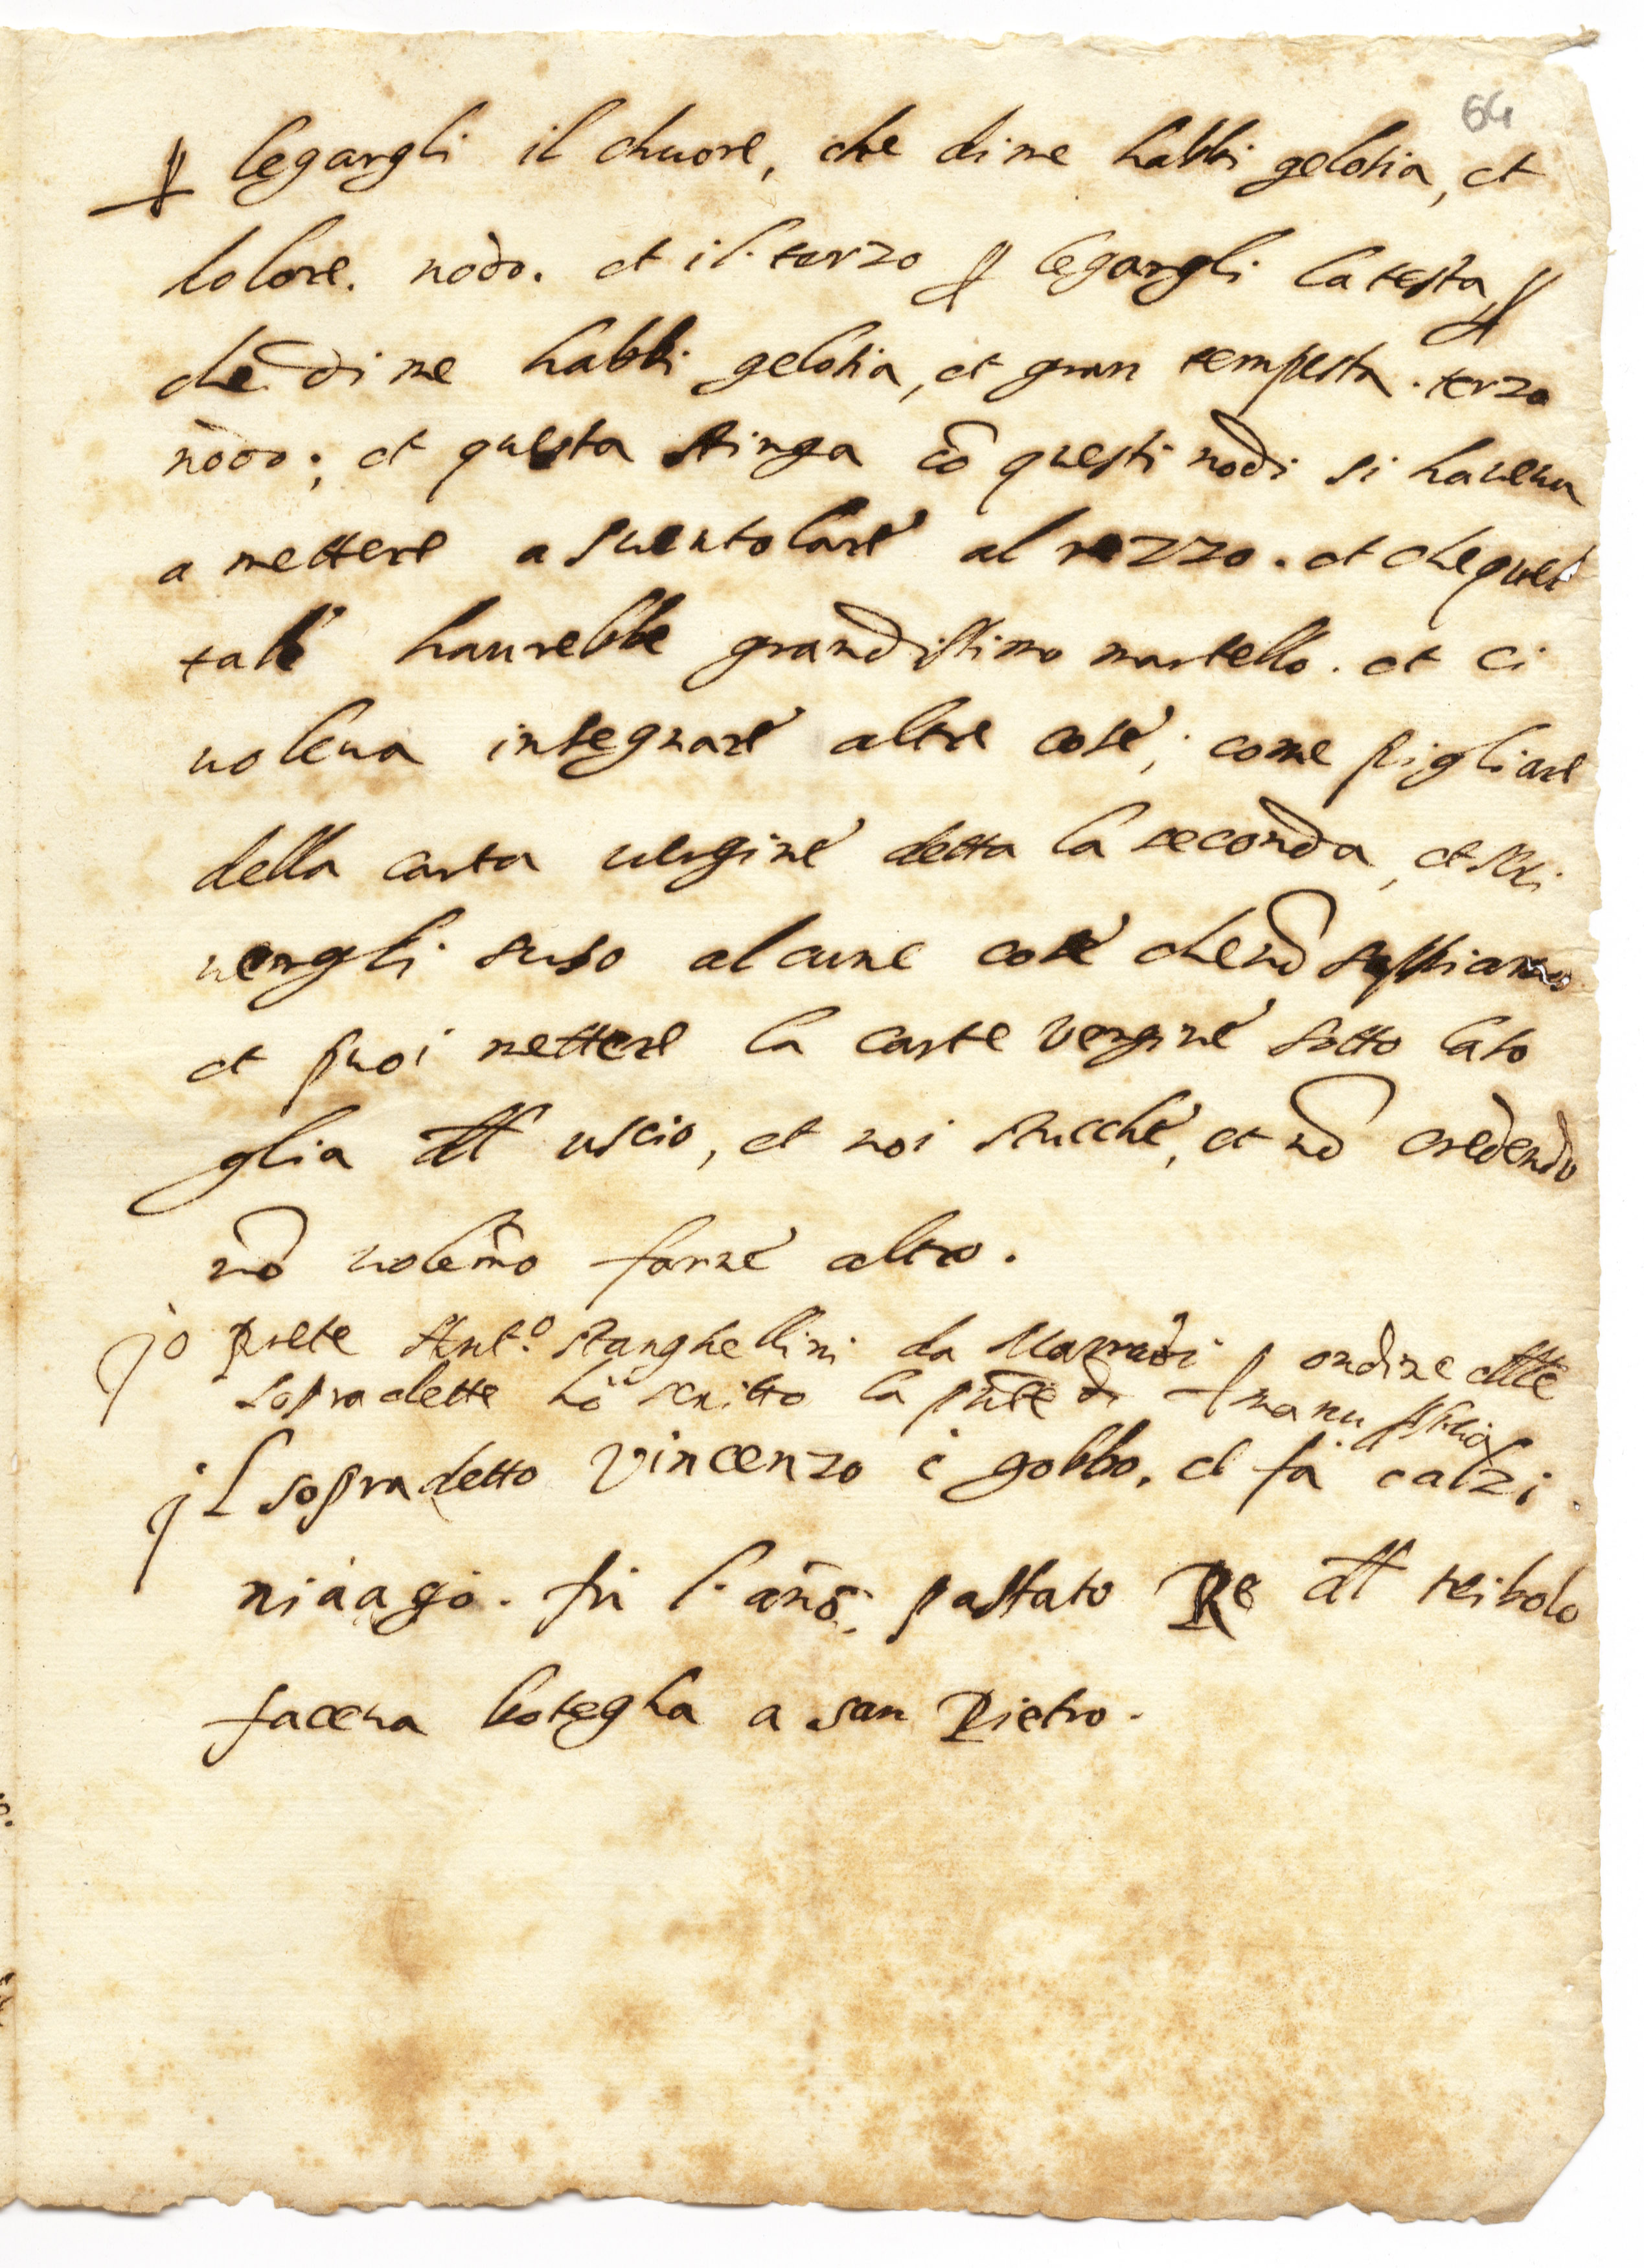 64
ꝑ legargli il chuore, che di me habbi gelosia, et
dolore. nodo. et il terzo ꝑ legargli la testa, ꝑ
che di me habbi gelosia, et gran tempesta. terzo
nodo; et questa stringa cõ questi nodi si haveva
a mettere a sventolare al rezzo. et che quel
tale haurebbe grandissimo martello. et ci
voleva insegnare altre cose; come pigliare
della carta vergine detta la seconda, et scri
vergli suso alcune cose che nõ sappiamo
et puoi mettere la carte vergine sotto la so
glia dell uscio, et noi stucche, et nõ credendo
nõ volẽmo farne altro.
jo prete Ant.º Stanghellini da Marradi ꝑ ordine delle
sopradette hò scritto la pñte di ꝓ manu
jl sopradetto Vincenzo è gobbo. et fa calzi
ni a ago. fu l. anõ. passato Re del teibolo
faceva botegha a san Pietro.